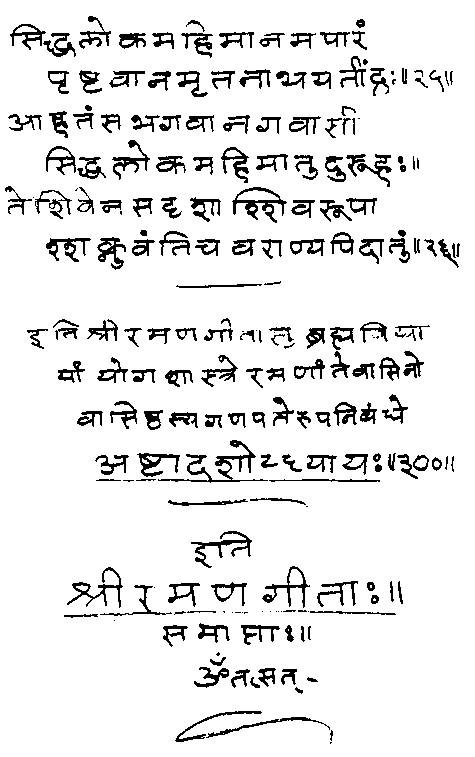 सिद्धलोकमहिमानमपारं
पृष्टवानमृतनाथयतींद्रः॥२५॥
आह तं स भगवानगवाशी
सिद्धलोकमहिमातु दुरूहः॥
ते शिवेन सदृशाश्शिवरूपा
श्शक्नुवंति च वराण्यपि दातुं॥२६॥
इति श्रीरमणगीतासु ब्रह्मविद्या
यां योगशास्त्रे रमणांतेवासिनो
वासिष्ठस्य गणपतेरुपनिबंधे
अष्टादशोध्यायः॥३००॥
इति
श्रीरमणगीताः॥
समाप्ताः॥
ॐ तत्सत् -